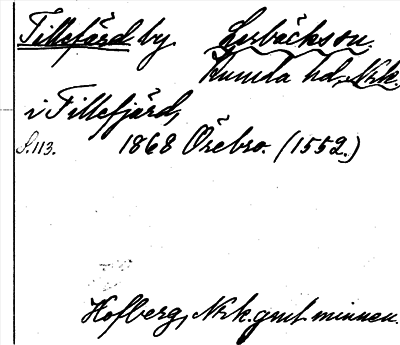 Tillefärd by Lerbäcks sn.
Kumla hd, Nrk.
i Tillefjärd,
S. 113. 1868 Örebro. (1552.)
Hofberg, Nrk. gml. minnen.